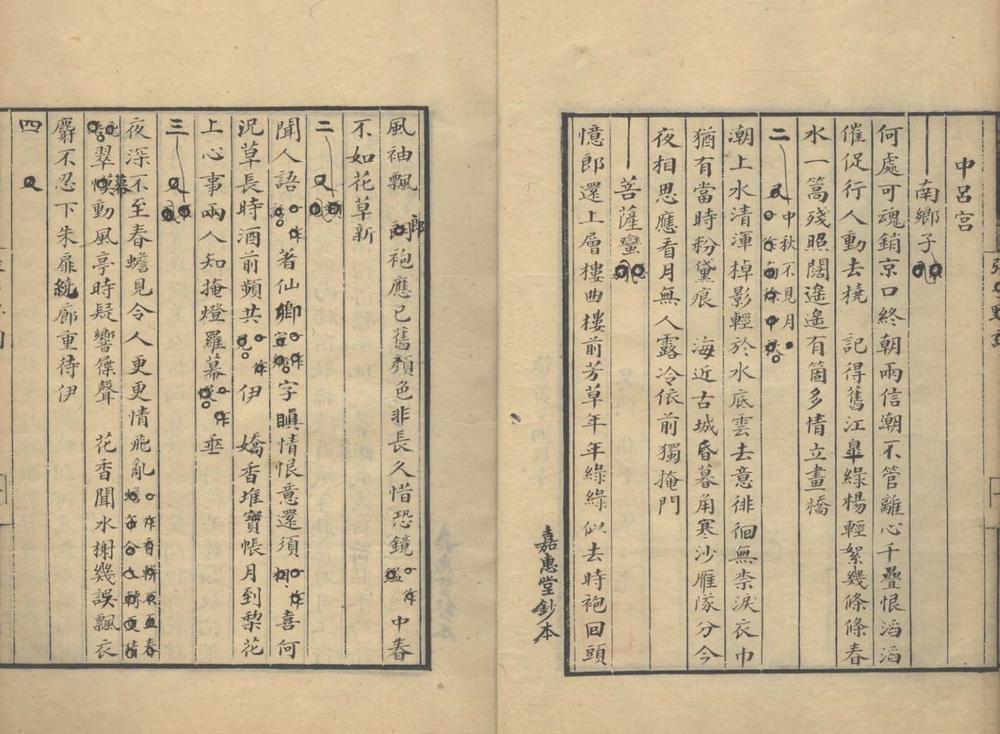 中呂宮
南鄉子
何處可魂銷京口終朝兩信潮不管離心千疊恨滔滔
催促行人動去橈 記得舊江皐綠楊輕絮幾條條春
水一篙殘照闊遙遙有箇多情立畫橋
二 中秋不見月
潮上水清渾棹影輕於水底雲去意徘徊無柰淚衣巾
猶有當時粉黛痕 海近古城昏暮角寒沙雁隊分今
夜相思應看月無人露冷依前獨掩門
菩薩蠻
憶郎還上層樓曲樓前芳草年年綠綠似去時袍回頭
嘉惠堂鈔本
風袖飄 郎袍應已舊顏色非長久惜恐鏡中春
不如花草新
二
聞人語 著仙卿字瞋情恨意還須喜何
況草長時酒前頻共伊 嬌香堆寶帳月到梨花
上心事兩人知掩燈羅幕垂
三
夜深不至春蟾見令人更更情飛亂
翠幕動風亭時疑響屧聲 花香聞水榭幾誤飄衣
麝不忍下朱扉繞廊重待伊
四